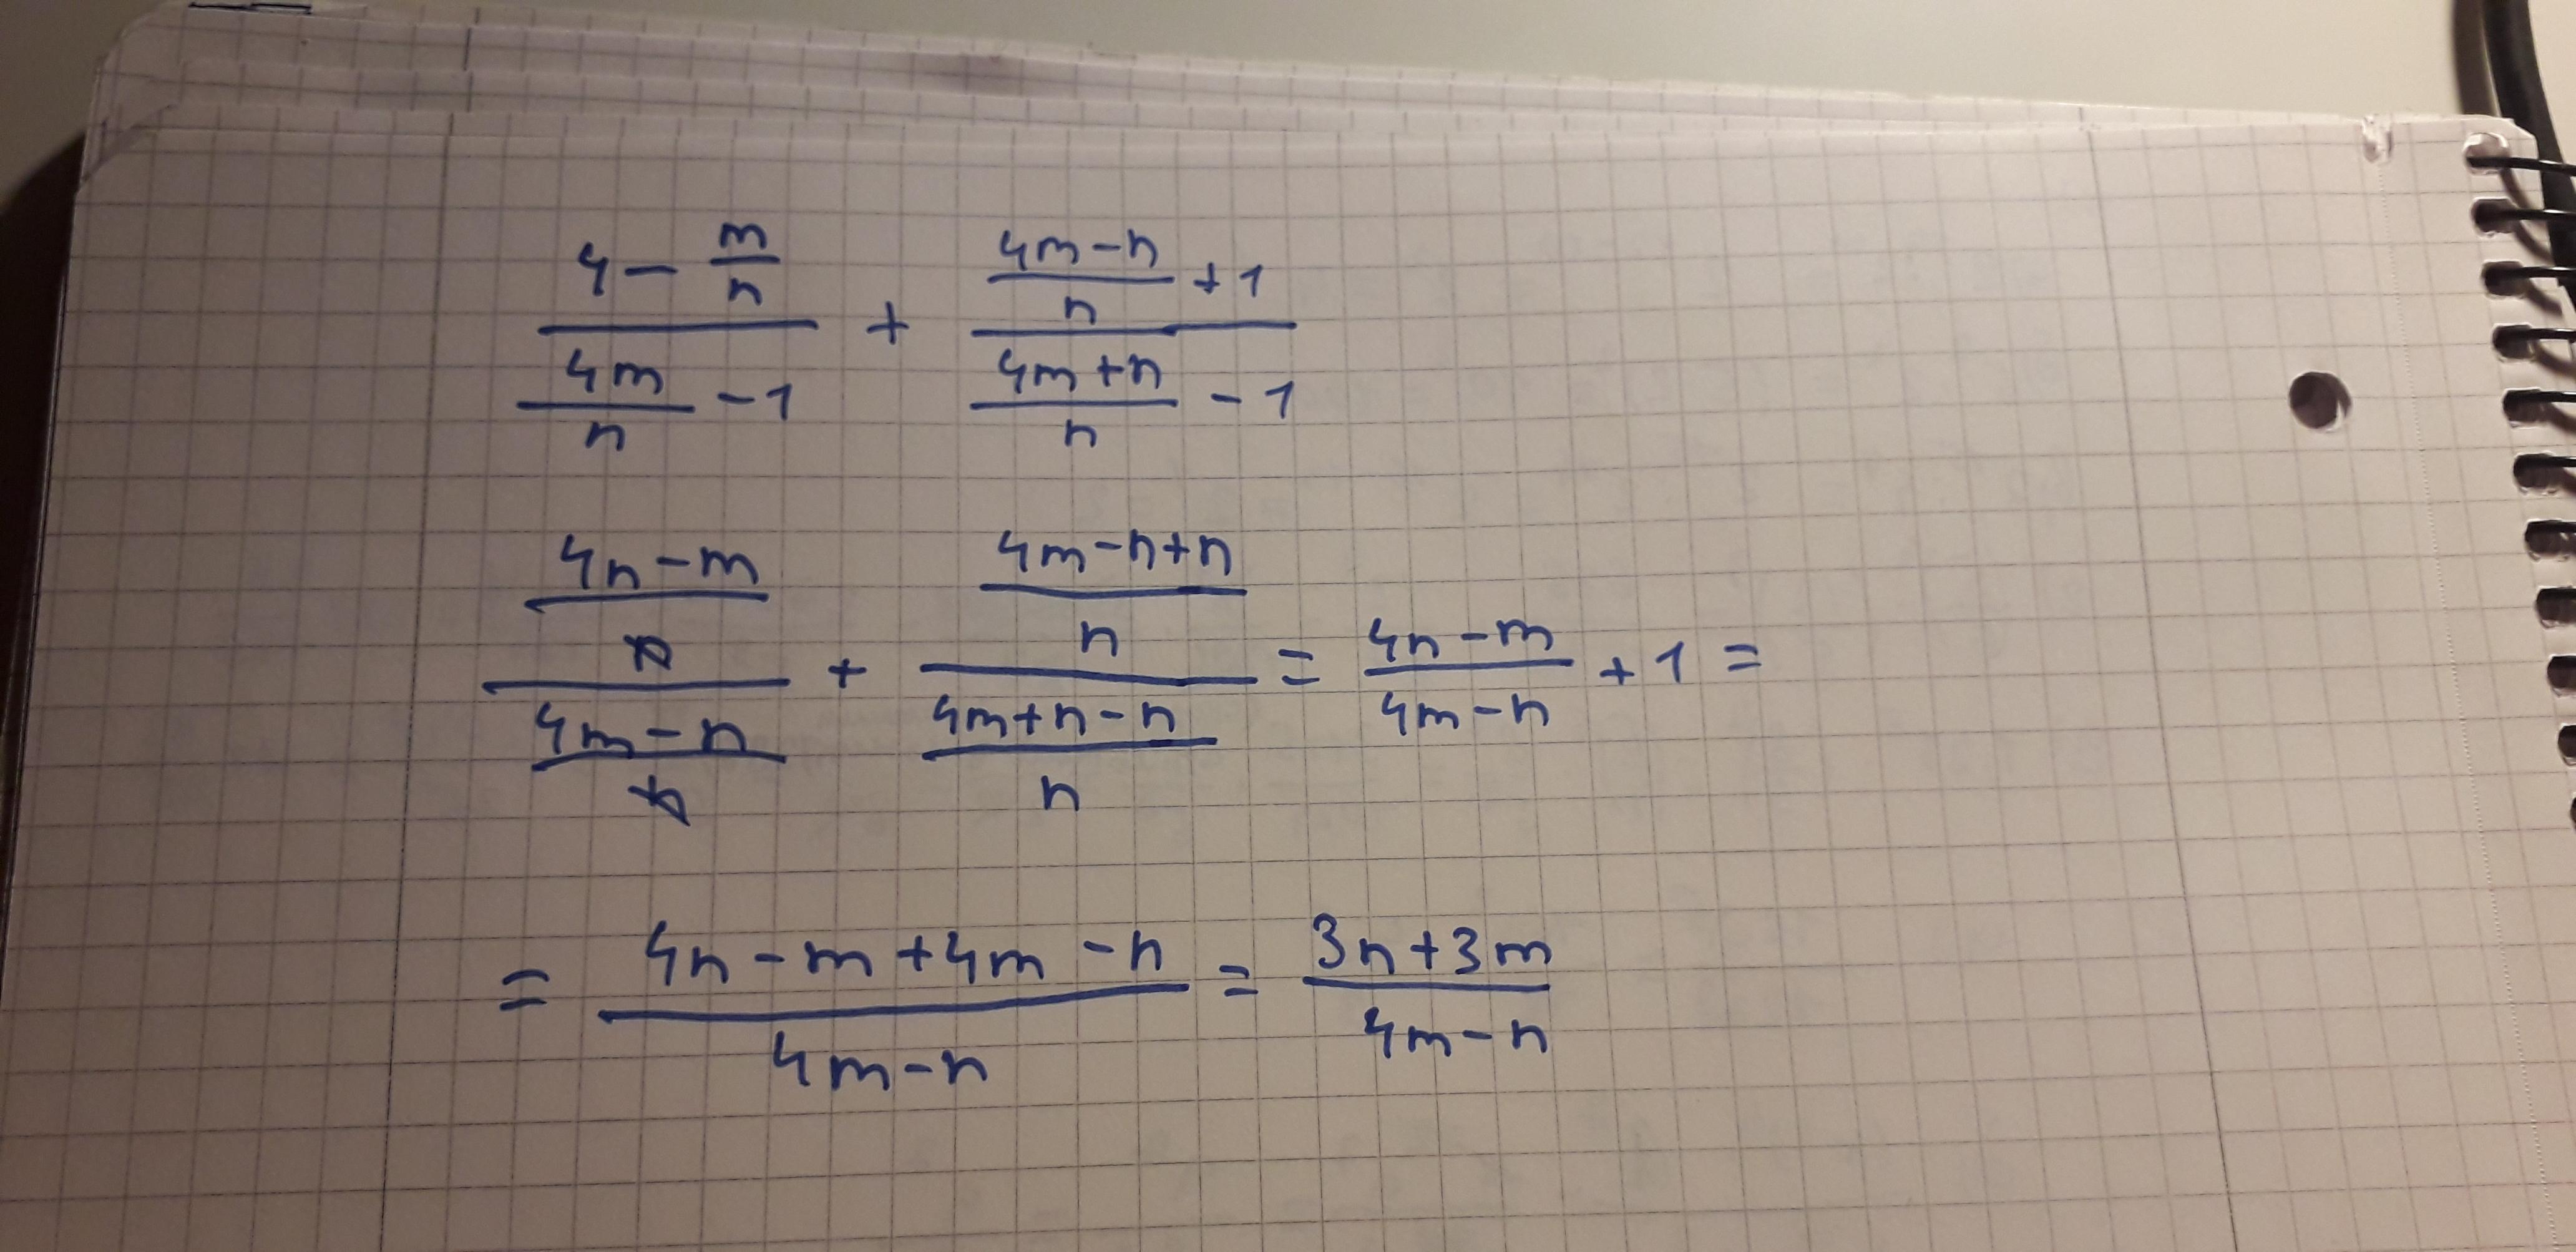 \frac{4 - \frac{m}{n}}{\frac{4m}{n} - 1} + \frac{\frac{4m - n}{n} + 1}{\frac{4m + n}{n} - 1}
\frac{\frac{4n - m}{n}}{\frac{4m - n}{n}} + \frac{\frac{4m - n + n}{n}}{\frac{4m + n - n}{n}} = \frac{4n - m}{4m - n} + 1 =
= \frac{4n - m + 4m - n}{4m - n} = \frac{3n + 3m}{4m - n}